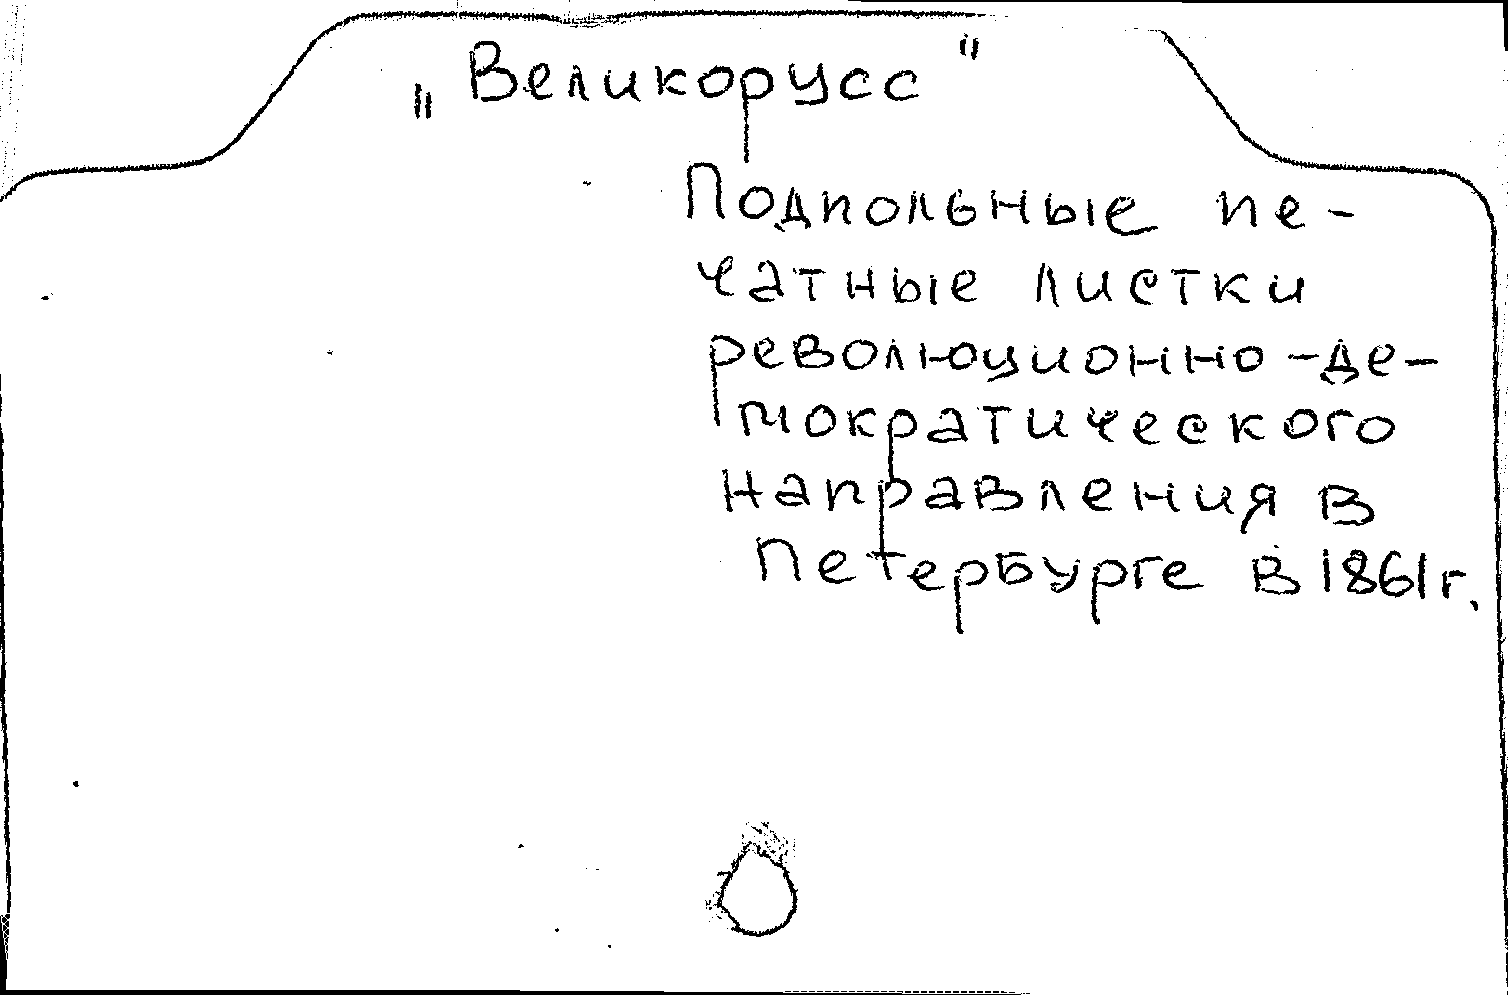 „Великорусс"
Подпольные пе-
чатные листки
революционно-де-
мократического
направления в
Петербурге в 1861 г.